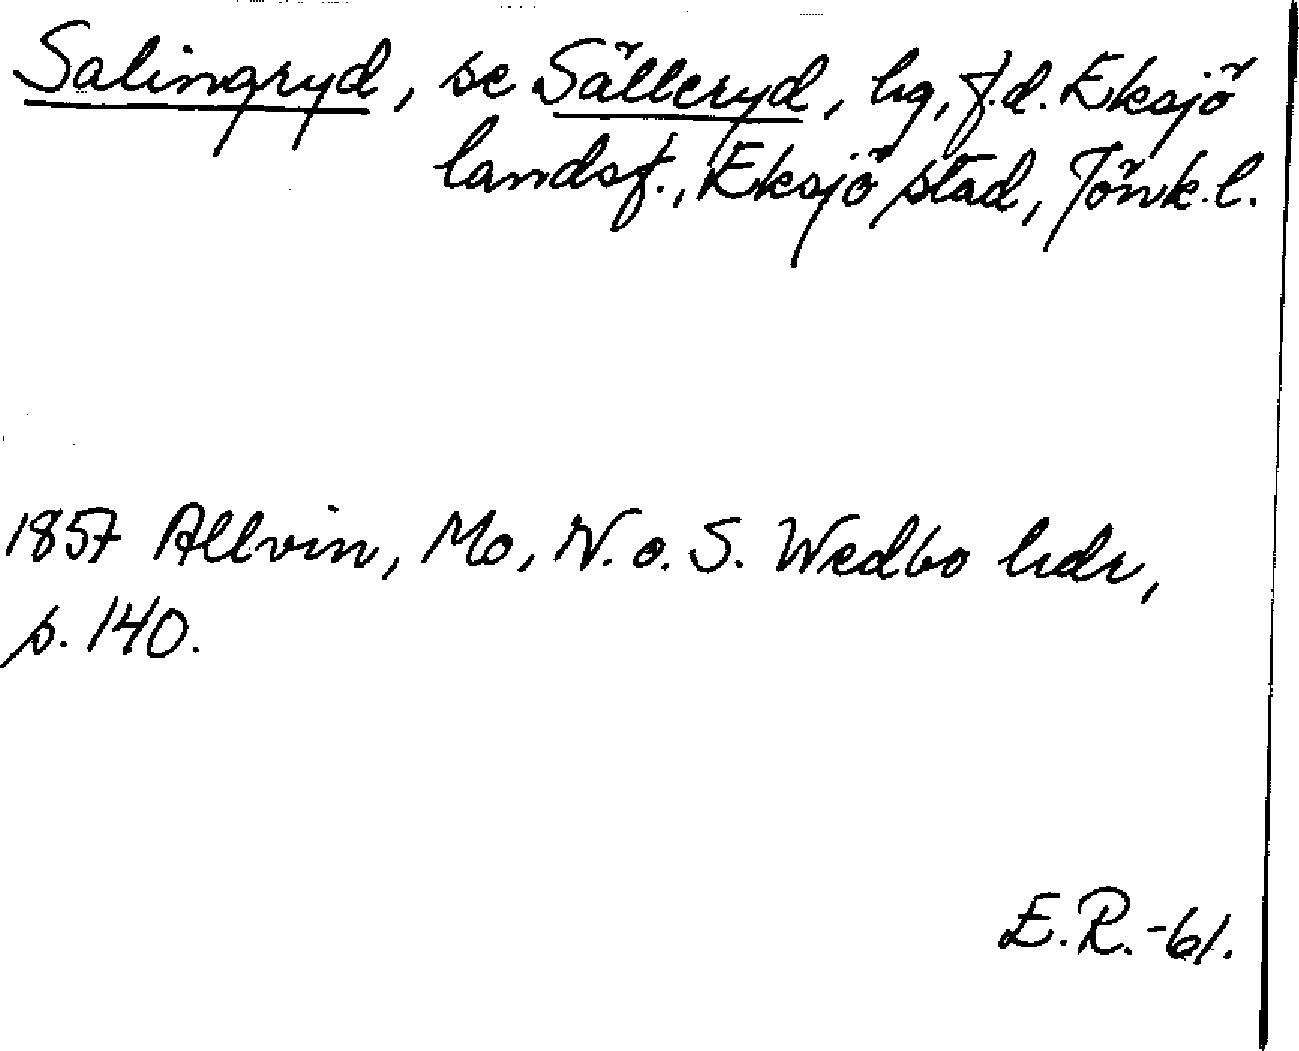 Salingryd, se Sälleryd, hg, f.d. Eksjö
landsf., Eksjö stad, Jönk.l.
1857 Allvin, Mo, N. o. S. Wedbo hdr,
s. 140.
E.R.-61.